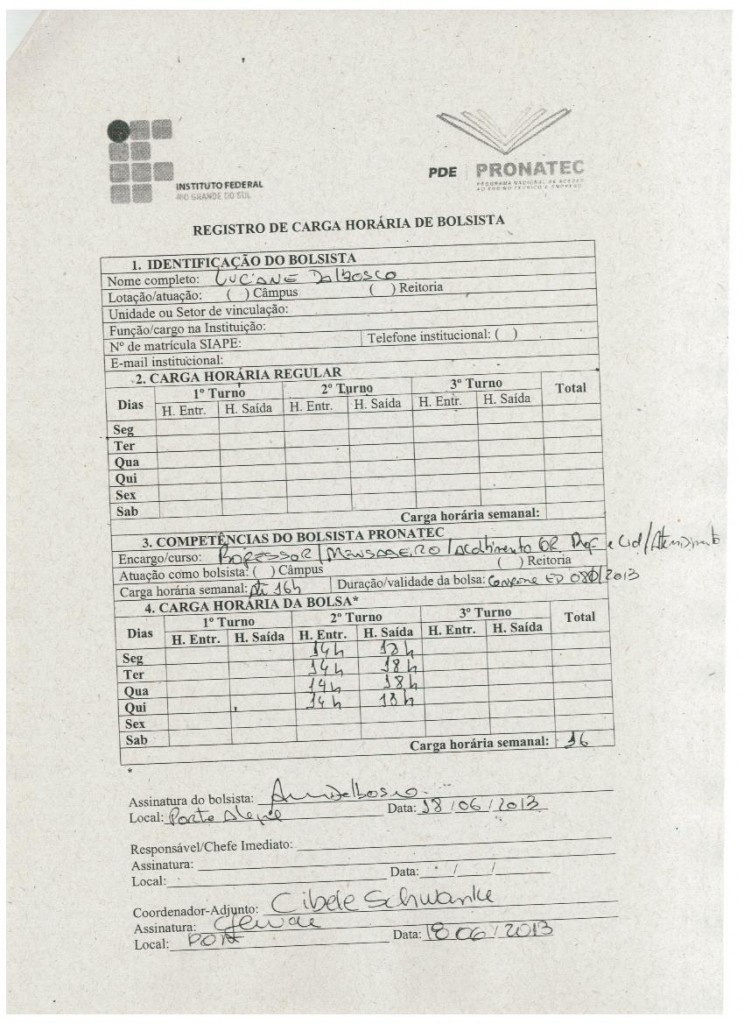 INSTITUTO FEDERAL
RIO GRANDE DO SUL
PDE PRONATEC
PROGRAMA NACIONAL DE ACESSO
AO ENSINO TÉCNICO E EMPREGO
REGISTRO DE CARGA HORÁRIA DE BOLSISTA
1. IDENTIFICAÇÃO DO BOLSISTA
Nome completo: LUCIANE DALBOSCO
Lotação/atuação: ( ) Câmpus ( ) Reitoria
Unidade ou Setor de vinculação:
Função/cargo na Instituição:
Nº de matrícula SIAPE: Telefone institucional: ( )
E-mail institucional:
2. CARGA HORÁRIA REGULAR
Dias 1º Turno 2º Turno 3º Turno Total
H. Entr. H. Saída H. Entr. H. Saída H. Entr. H. Saída
Seg
Ter
Qua
Qui
Sex
Sab
Carga horária semanal:
3. COMPETÊNCIAS DO BOLSISTA PRONATEC
Encargo/curso: PROFESSOR/MENSAGEIRO/Acolhimento Prof e Cid/Atendimento
Atuação como bolsista: ( ) Câmpus ( ) Reitoria
Carga horária semanal: Até 16h Duração/validade da bolsa: conforme ED 080/2013
4. CARGA HORÁRIA DA BOLSA*
Dias 1º Turno 2º Turno 3º Turno Total
H. Entr. H. Saída H. Entr. H. Saída H. Entr. H. Saída
Seg 14h 18h
Ter 14h 18h
Qua 14h 18h
Qui 14h 18h
Sex
Sab
Carga horária semanal: 16
*
Assinatura do bolsista:
Local: Porto Alegre Data: 18/06/2013
Responsável/Chefe Imediato:
Assinatura:
Local: Data: / /
Coordenador-Adjunto: Cibele Schwanke
Assinatura:
Local: POA Data: 18 06/2013